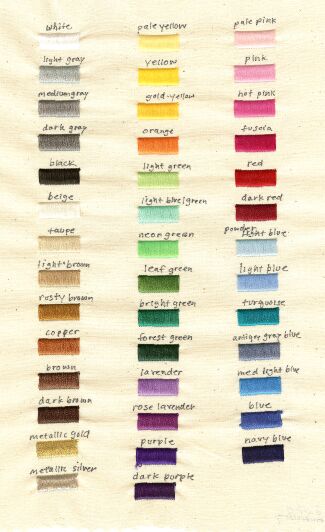 white
light gray
medium gray
dark gray
black
beige
taupe
light brown
rosty brown
copper
brown
dark brown
metallic gold
metallic silver
pale yellow
yellow
gold-yellow
orange
light green
light blue/green
neon green
leaf green
bright green
forest green
lavender
rose lavender
purple
dark purple
pale pink
pink
hot pink
fuscia
red
dark red
powder
light blue
light blue
turquoise
antique gray blue
med light blue
blue
navy blue